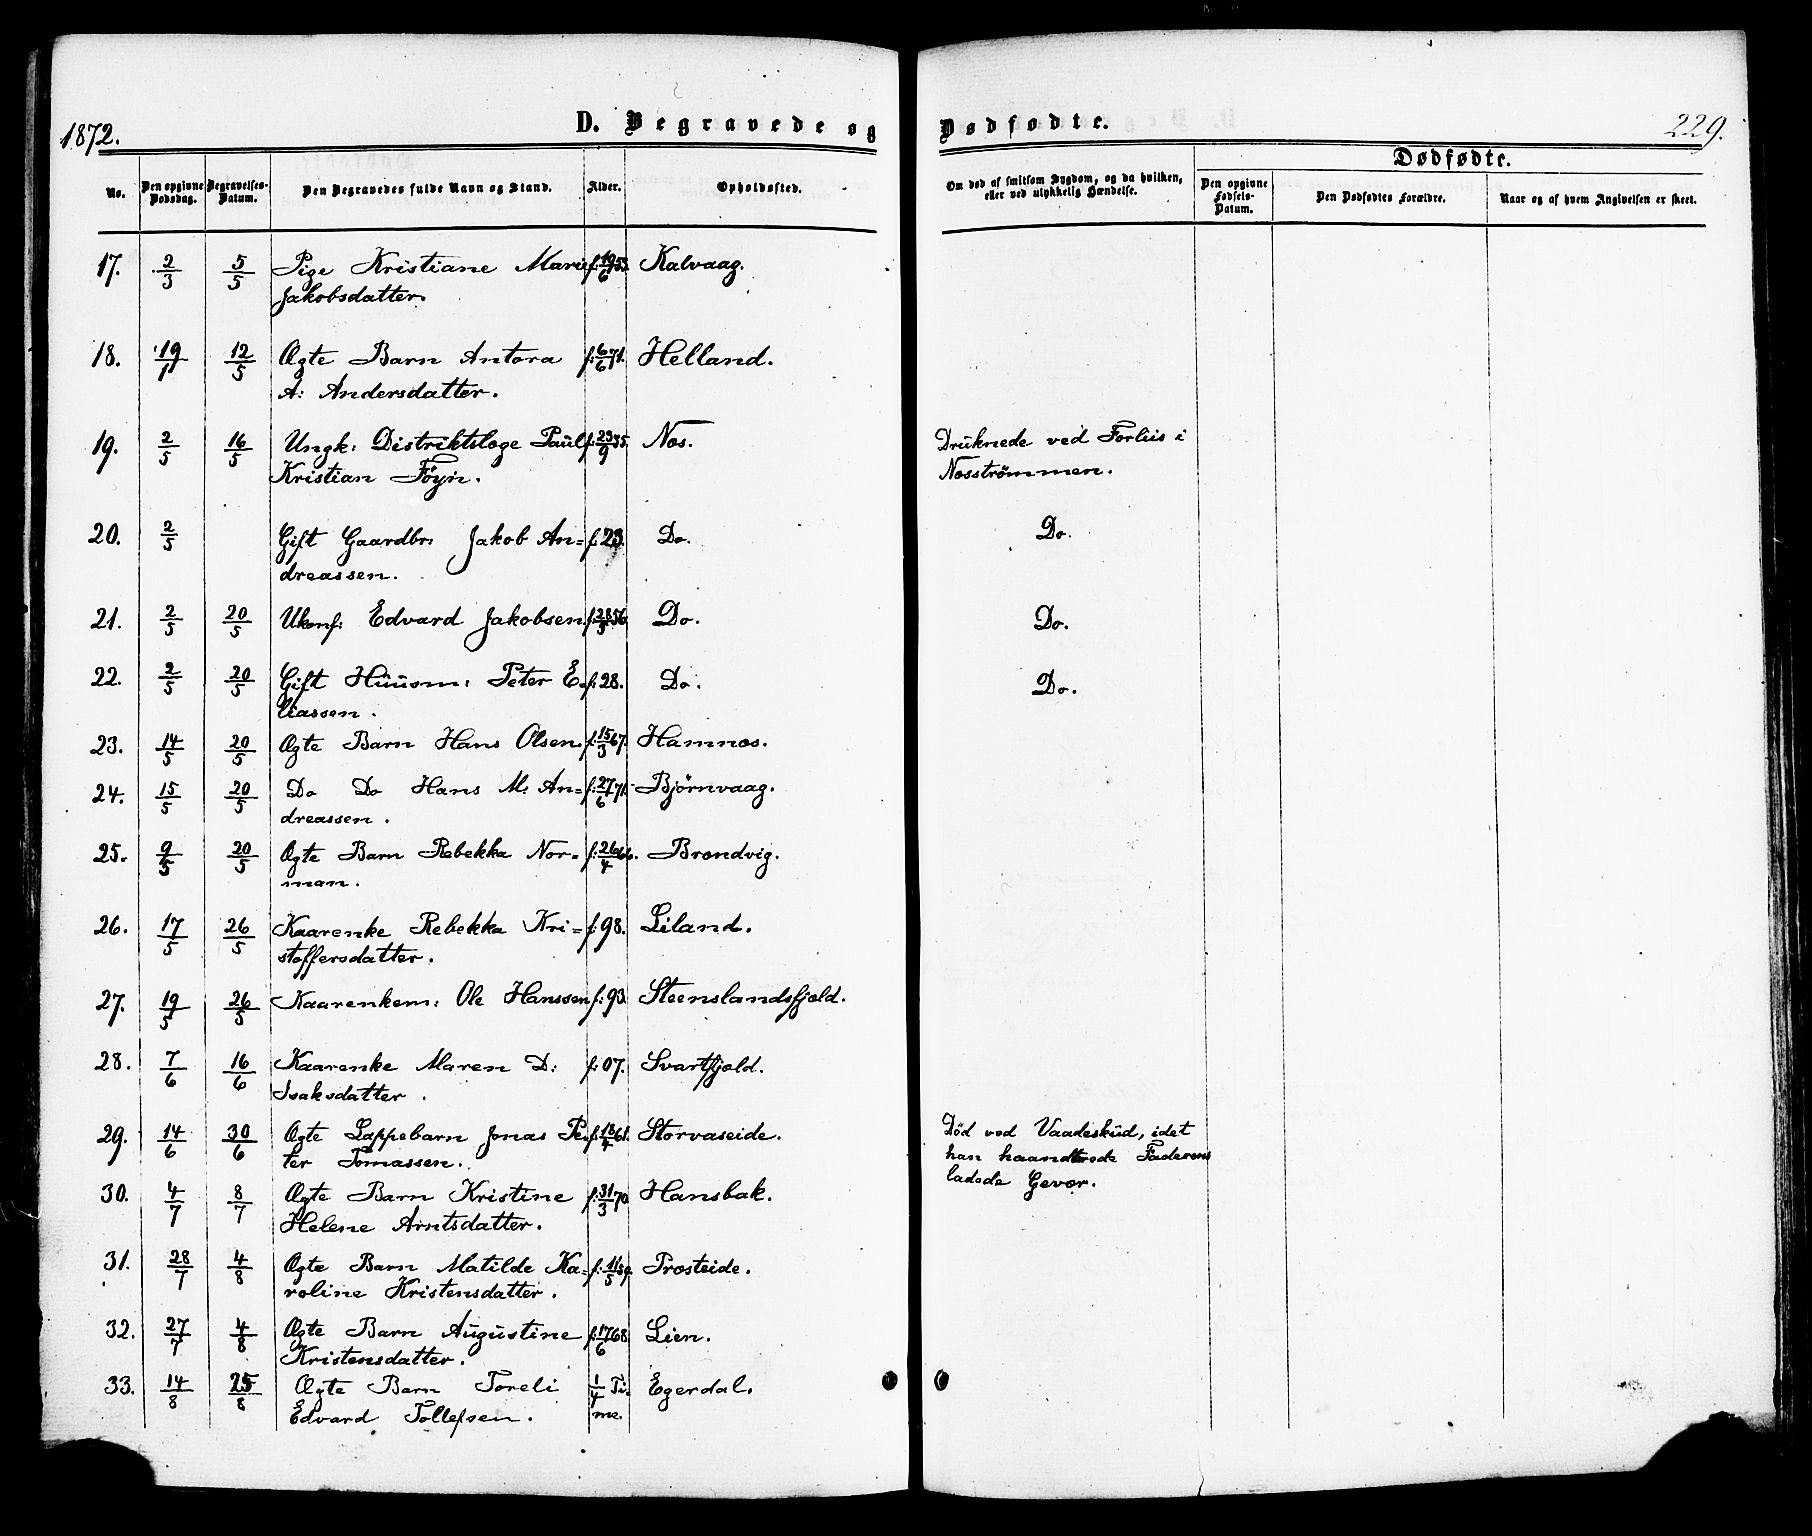 1872.
D. Begravede og
Dødfødte.
229.
No.
Den opgivne Dødsdag.
Begravelses-Datum.
Den Begravedes fulde Navn og Stand.
Alder.
Opholdssted.
Om død af smitsom Sygdom, og da hvilken, eller ved ulykkelig Hændelse.
Dødfødte.
Den opgivne Fødsels-Datum.
Den Dødfødtes Forældre.
Naar og af hvem Angivelsen er skeet.
17. 2/3 5/5 Pige Kristiane Marie f. 19/6 53. Kalvaag.
Jakobsdatter.
18. 19/1 12/5 Ægte Barn Antora f: 6/6 71. Helland.
A: Andersdatter.
19. 2/5 16/5 Ungk: Distriktslæge Paul f: 23/9 35. Næs. Druknede ved Forliis i
Kristian Föyn. Næsströmmen.
20. 2/5 Gift Gaardbr: Jakob An= f: 23. Do. Do.
dreassen.
21. 2/5 20/5 Ukonf: Edvard Jakobsen. f: 28/5 56. Do. Do.
22. 2/5 20/5 Gift Huusm: Peter E= f: 28. Do. Do.
liassen.
23. 14/5 20/5 Ægte Barn Hans Olsen. f: 15/3 67. Hamnæs.
24. 15/5 20/5 Do Do Hans M: An= f: 27/6 71. Björnvaag.
dreassen.
25. 9/5 20/5 Ægte Barn Rebekka Nor= f: 26/4 66. Brændvig.
man.
26. 17/5 26/5 Kaarenke Rebekka Kri= f: 98. Liland.
stoffersdatter.
27. 19/5 26/5 Kaarenkem: Ole Hanssen f: 93. Steenslandsfjeld.
28. 7/6 16/6 Kaarenke Maren D: f: 07. Svartfjeld.
Isaksdatter.
29. 14/6 30/6 Ægte Lappebarn Jonas Pe= f: 18/4 61. Storvaseide. Död ved Vaadeskud, idet
ter Tomassen. han haandterede Faderens
ladede Gevær.
30. 4/7 8/7 Ægte Barn Kristine f: 31/3 70. Hansbak.
Helene Arntsdatter.
31. 28/7 4/8 Ægte Barn Matilde Ka= f: 11/5 59. Præsteide.
roline Kristensdatter.
32. 27/7 4/8 Ægte Barn Augustine f: 17/6 68. Lien.
Kristensdatter.
33. 14/8 25/8 Ægte Barn Toreli 1/4 Ti= Egerdal.
Edvard Tollefsen. me.